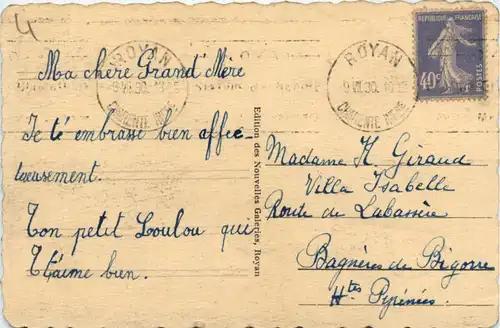 4
ROYAN
9 VII.30.
CHARENTE INFRE
ROYAN
9 VII.30.
CHARENTE INFRE
REPUBLIQUE FRANÇAISE
40c
POSTES
Ma chère Grand'Mère
Je té embrasse bien affec-
tueusement.
Ton petit Loulou qui
T'aime bien.
Edition des Nouvelles Galeries, Royan
Madame H. Giraud
Villa Isabelle
Route de Labassère
Bagnères de Bigorre
Htes Pyrénées